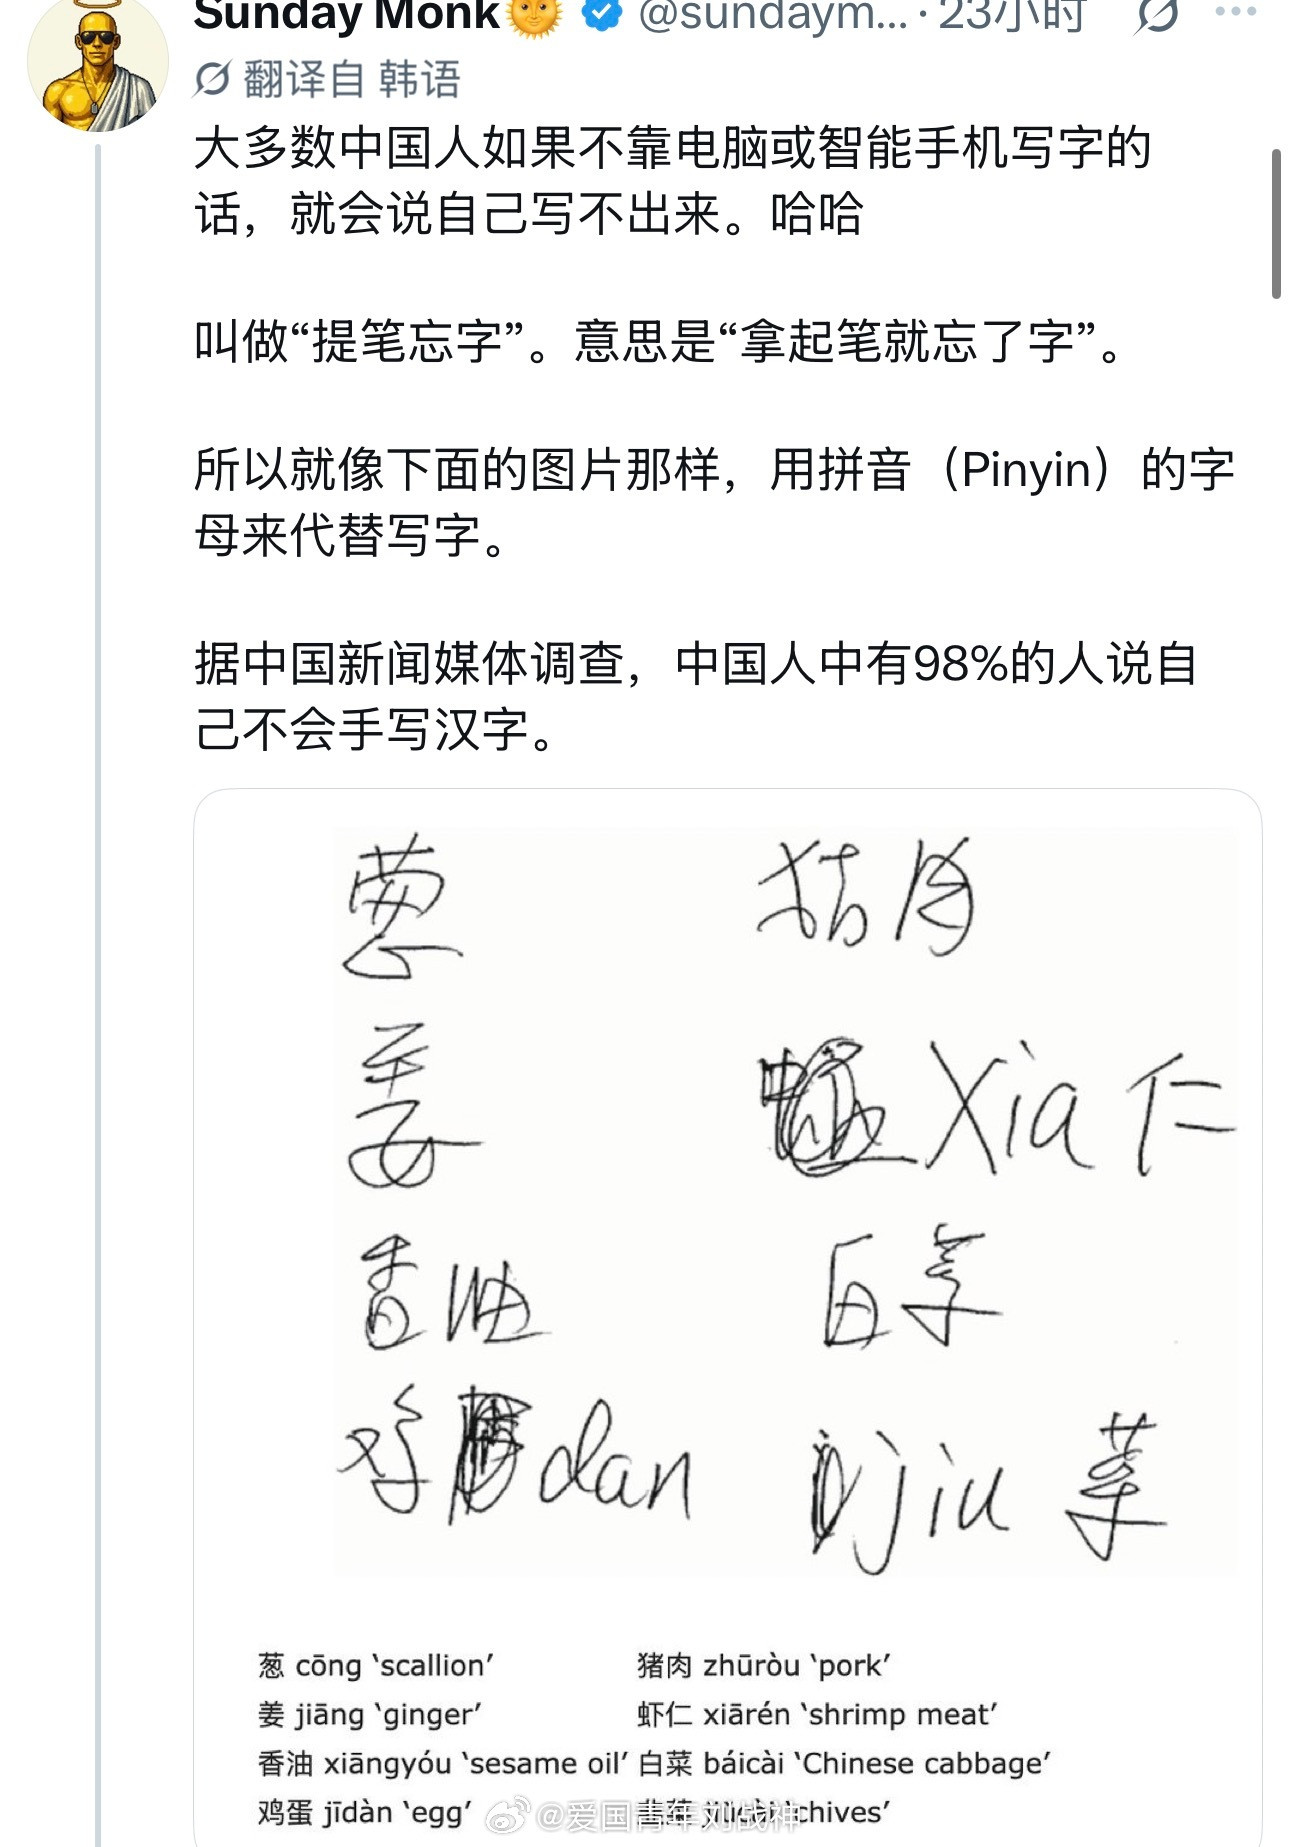 Sunday Monk🌞 @sundaym... · 23小时
翻译自 韩语
大多数中国人如果不靠电脑或智能手机写字的
话，就会说自己写不出来。哈哈
叫做“提笔忘字”。意思是“拿起笔就忘了字”。
所以就像下面的图片那样，用拼音（Pinyin）的字
母来代替写字。
据中国新闻媒体调查，中国人中有98%的人说自
己不会手写汉字。
葱 猪肉
姜 Xia 仁
香油 白菜
鸡 dan jiu 菜
葱 cōng ‘scallion’ 猪肉 zhūròu ‘pork’
姜 jiāng ‘ginger’ 虾仁 xiārén ‘shrimp meat’
香油 xiāngyóu ‘sesame oil’ 白菜 báicài ‘Chinese cabbage’
鸡蛋 jīdàn ‘egg’ 韭菜 jiǔcài ‘chives’
@爱国青年刘战神